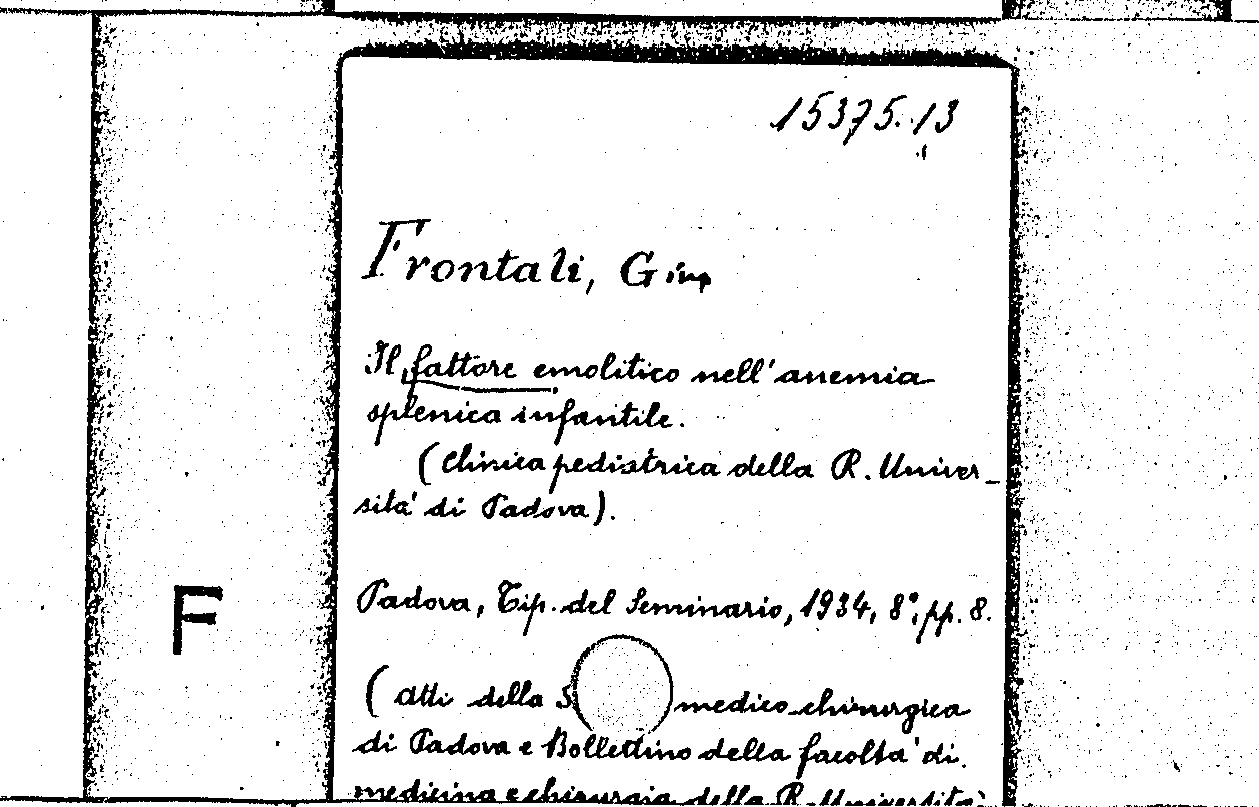 15375.13
Frontali, Gino
Il fattore emolitico nell'anemia
splenica infantile.
(Clinica pediatrica della R. Univer-
sità di Padova).
Padova, Tip. del Seminario, 1934, 8°, pp. 8.
F
(Atti della S medico-chirurgica
di Padova e Bollettino della facoltà di
medicina e chirurgia della R. Università